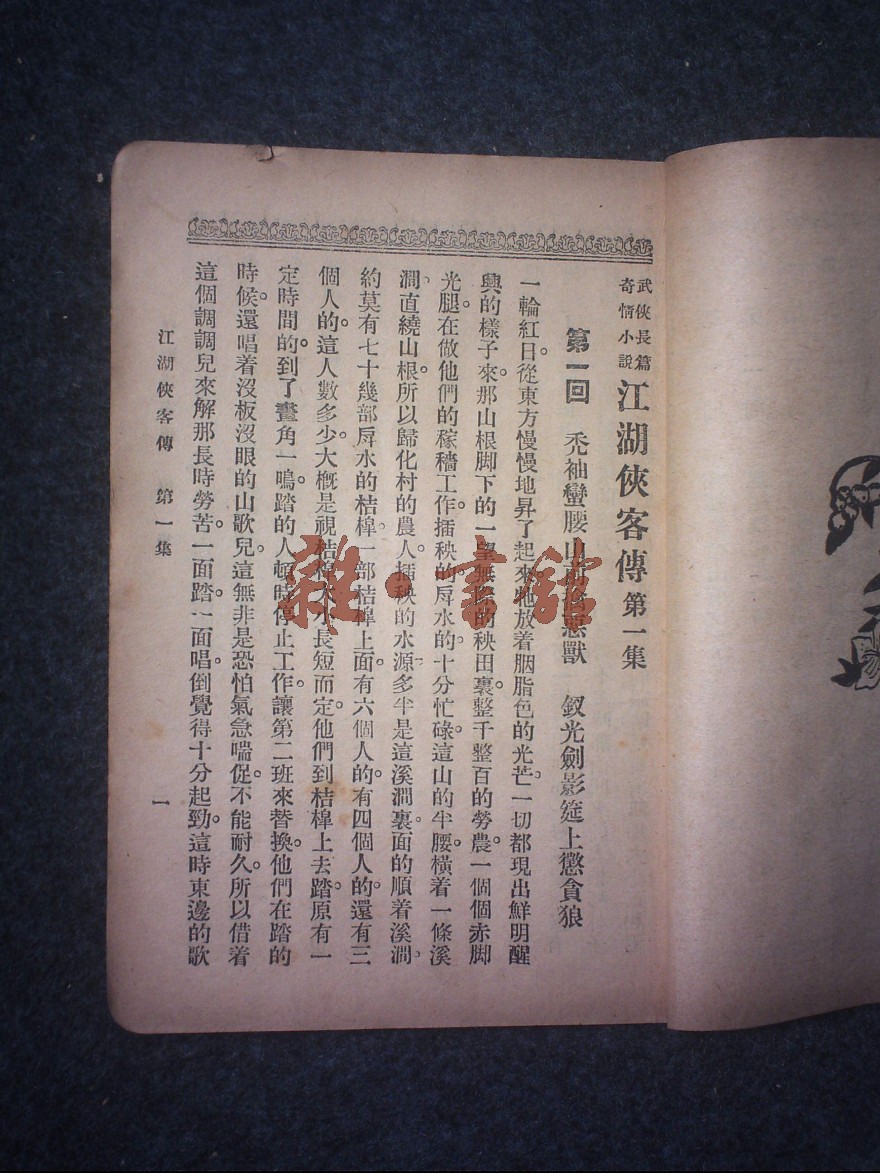 武俠長篇
奇情小說
江湖俠客傳 第一集
第一回 禿袖蠻腰山前 惡獸 釵光劍影筵上懲貪狼
一輪紅日。從東方慢慢地昇了起來牠放着胭脂色的光芒。一切都現出鮮明醒
興的樣子來。那山根脚下的一望無 的秧田裏。整千整百的勞農。一個個赤脚
光腿。在做他們的稼穡工作。插秧的。戽水的。十分忙碌。這山的半腰。橫着一條溪
澗。直繞山根。所以歸化村的農人。插秧的水源。多半是這溪澗裏面的。順着溪澗。
約莫有七十幾部戽水的桔槹。一部桔槹上面。有六個人的。有四個人的。還有三
個人的。這人數多少。大概是視桔槹大小長短而定。他們到桔槹上去踏。原有一
定時間的。到了畫角一鳴。踏的人頓時停止工作。讓第二班來替換。他們在踏的
時候。還唱着沒板沒眼的山歌兒。這無非是恐怕氣急喘促。不能耐久。所以借着
這個調調兒來解那長時勞苦。一面踏。一面唱。倒覺得十分起勁。這時東邊的歌
江湖俠客傳 第一集
一
雜·書館